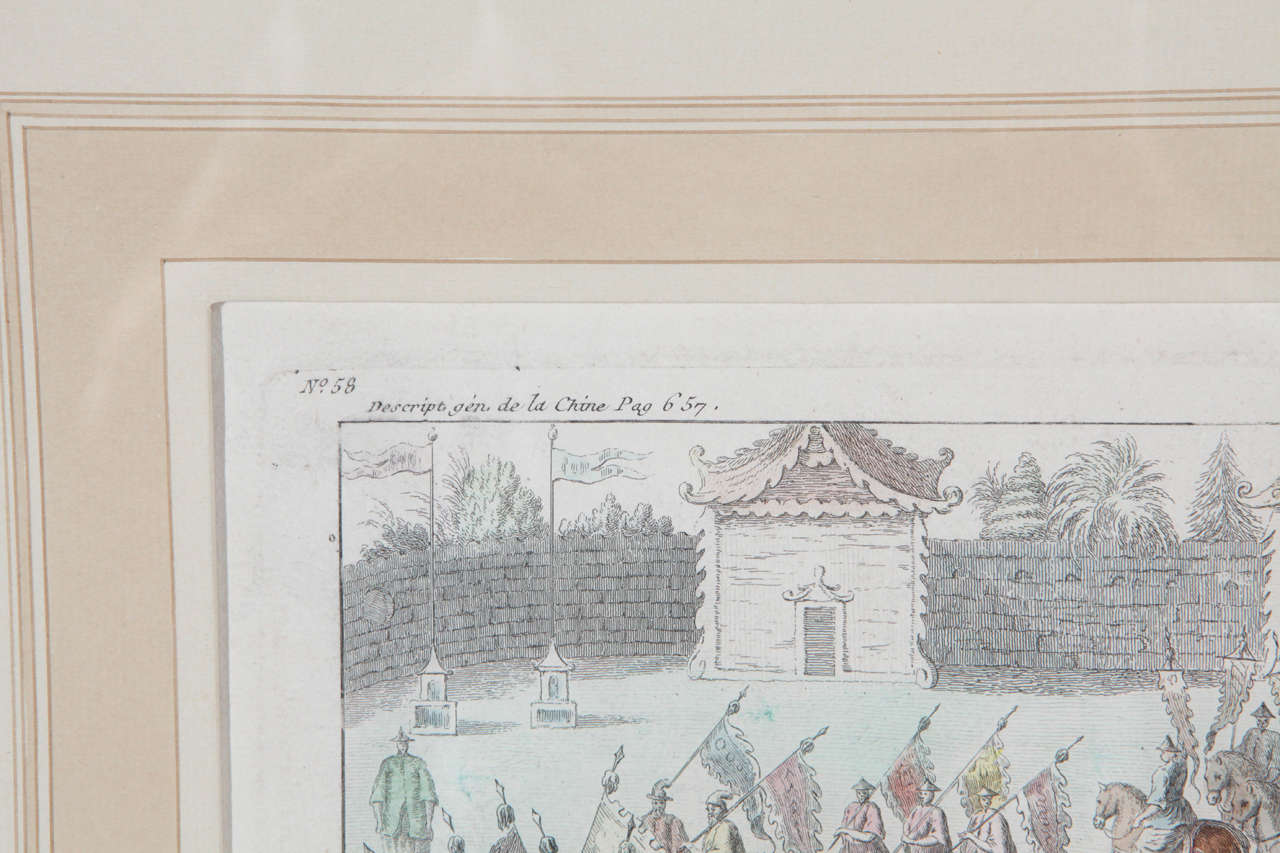 Nº. 58
Descript. gén. de la Chine Pag 657.